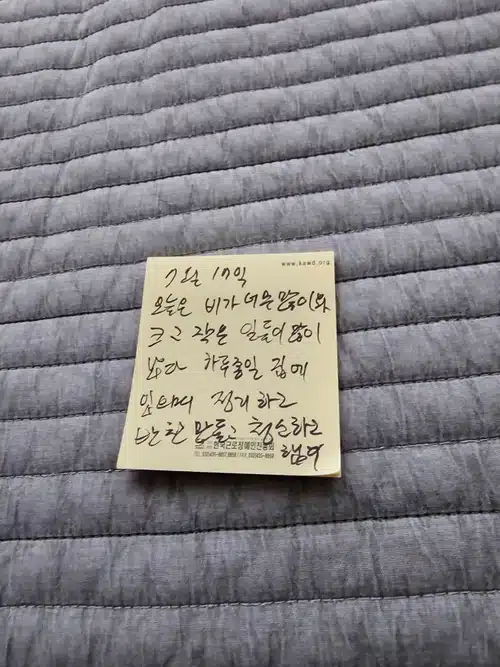 www.kawd.org
7월 17일
오늘은 비가 너무 많이 와
크고 작은 일들이 많이
하루종일 집에
정리하고
반찬 만들고 청소하고
한국근로장애인진흥회
했다